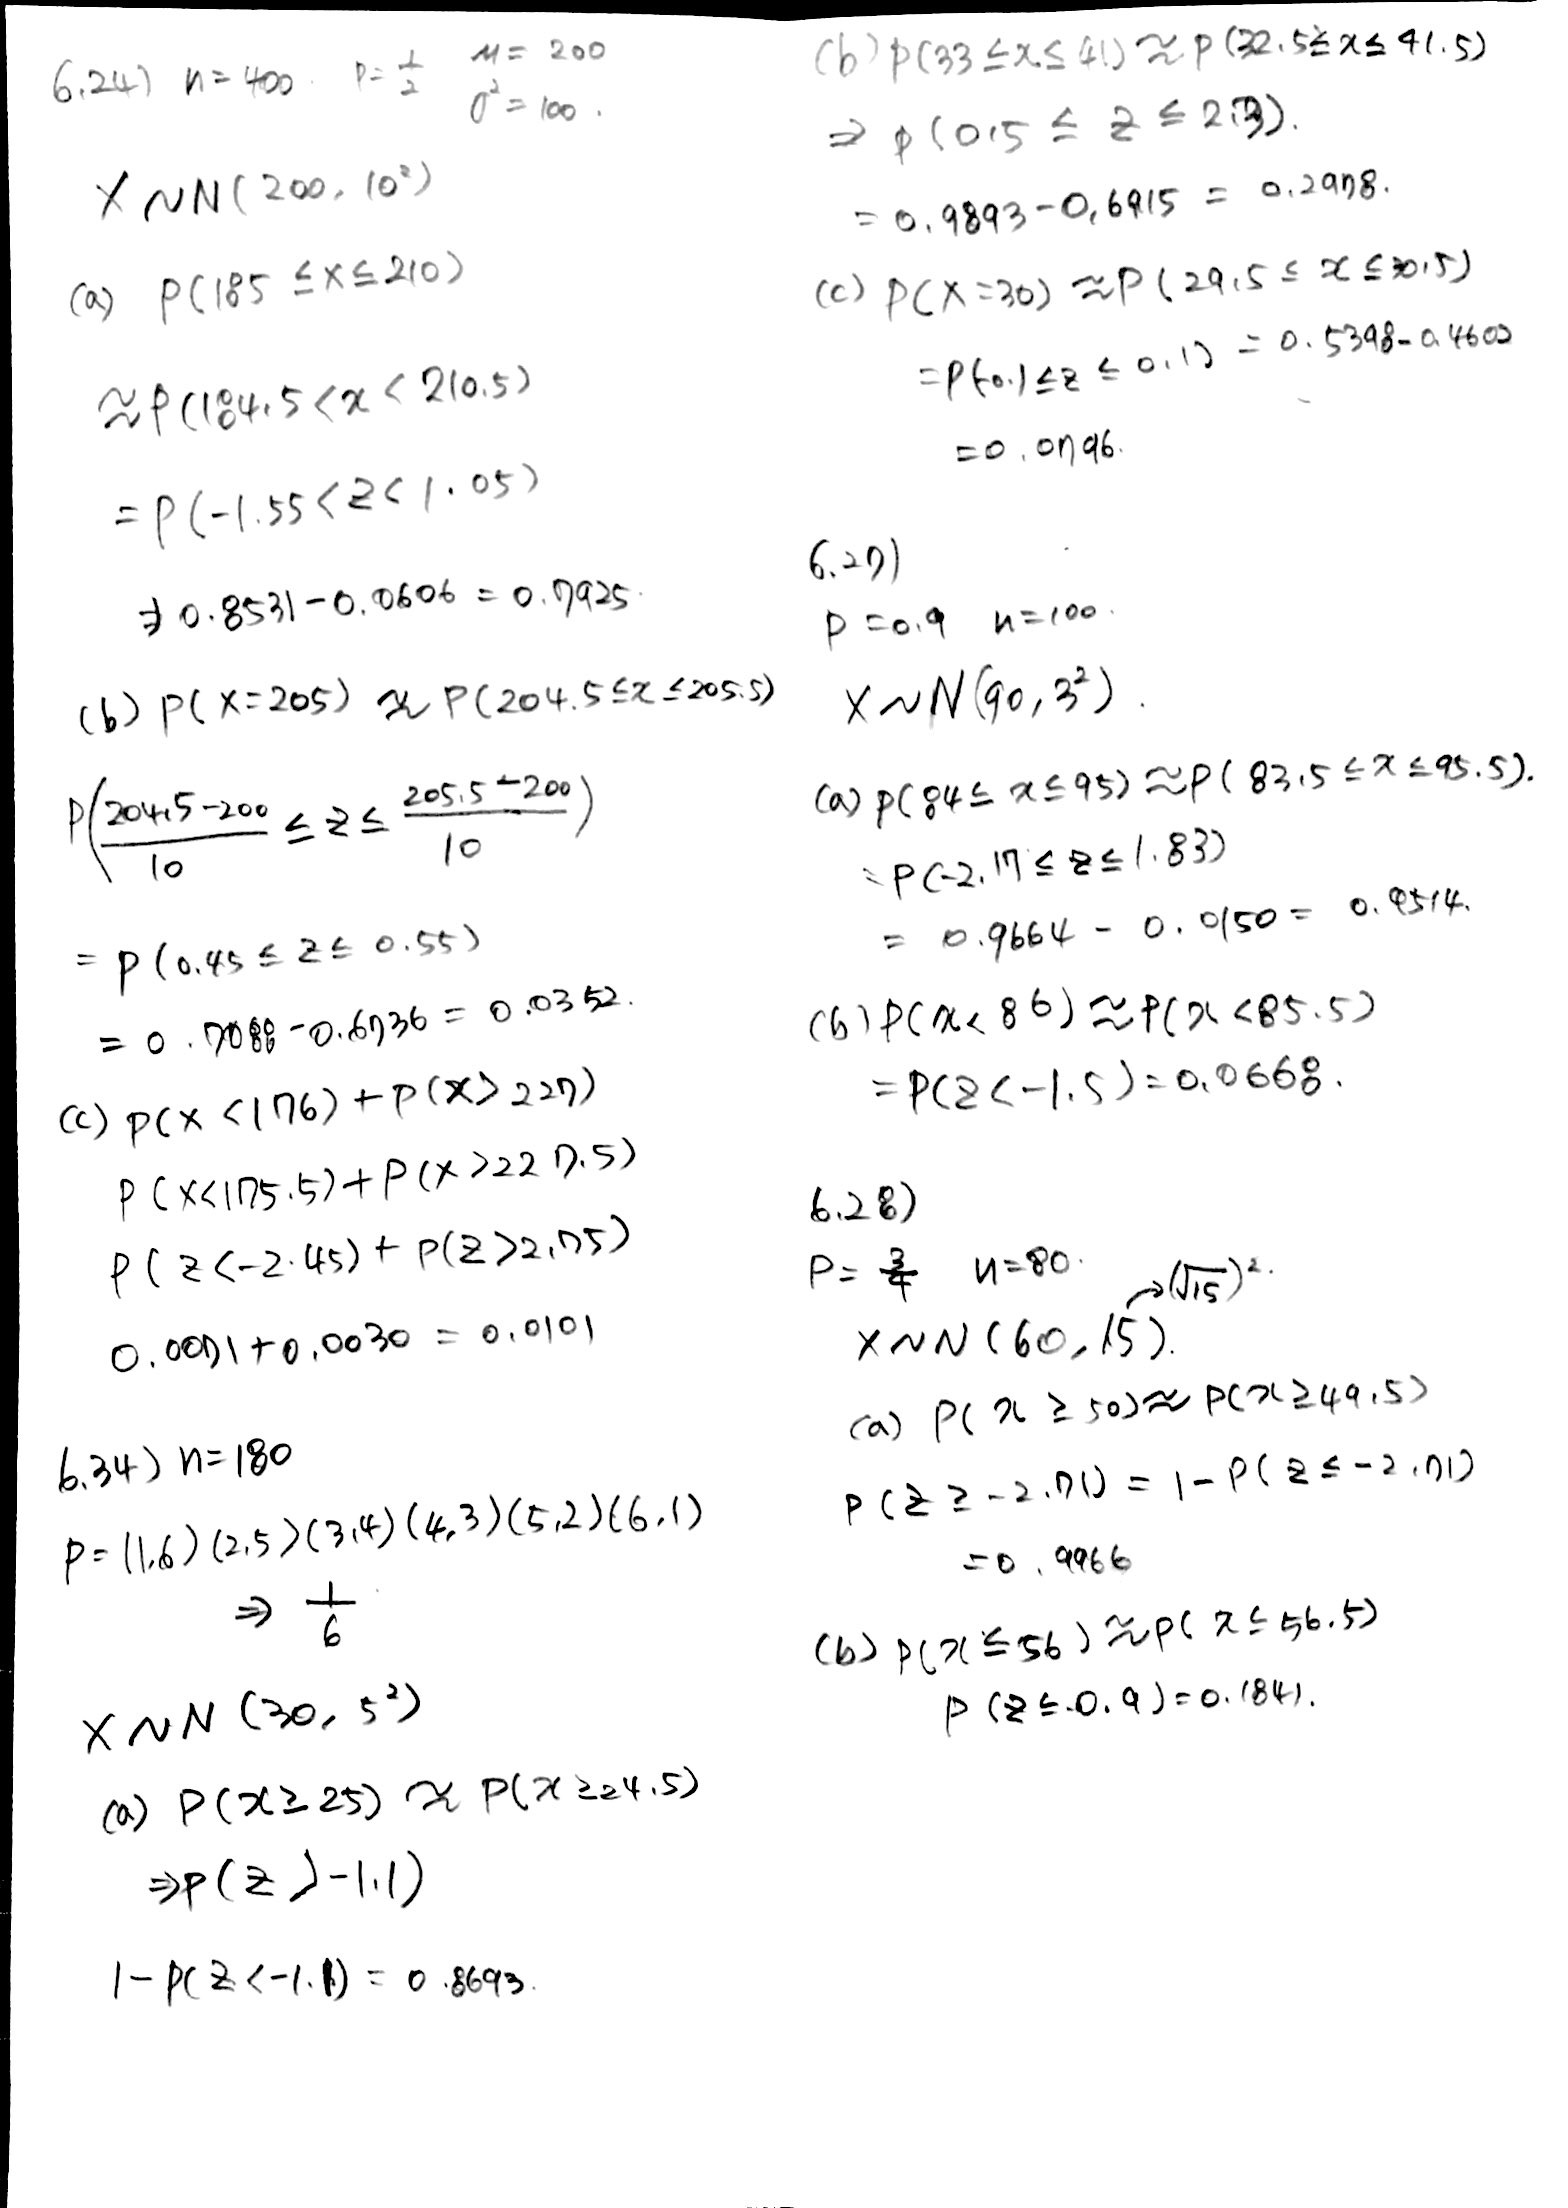 6.24) n=400 p=1/2 μ=200
σ²=100.
X~N(200, 10²)
(a) P(185≤X≤210)
≈P(184.5<x<210.5)
=P(-1.55<z<1.05)
⇒0.8531-0.0606=0.7925
(b) P(X=205)≈P(204.5≤x≤205.5)
P((204.5-200)/10≤z≤(205.5-200)/10)
=P(0.45≤z≤0.55)
=0.7088-0.6736=0.0352.
(c) P(X<176)+P(X>227)
P(X<175.5)+P(X>227.5)
P(z<-2.45)+P(z>2.75)
0.0071+0.0030=0.0101
6.34) n=180
p=(1,6)(2,5)(3,4)(4,3)(5,2)(6,1)
⇒1/6
X~N(30, 5²)
(a) P(x≥25)≈P(x≥24.5)
⇒P(z>-1.1)
1-P(z<-1.1)=0.8643.
(b) P(33≤x≤41)≈P(32.5≤x≤41.5)
⇒P(0.5≤z≤2.3).
=0.9893-0.6915=0.2978.
(c) P(X=30)≈P(29.5≤x≤30.5)
=P(-0.1≤z≤0.1)=0.5398-0.4602
=0.0796.
6.27)
p=0.9 n=100.
X~N(90, 3²).
(a) P(84≤x≤95)≈P(83.5≤x≤95.5).
=P(-2.17≤z≤1.83)
=0.9664-0.0150=0.9514.
(b) P(x<86)≈P(x<85.5)
=P(z<-1.5)=0.0668.
6.28)
p=3/4 n=80.
→(√15)².
X~N(60, 15).
(a) P(x≥50)≈P(x≥49.5)
P(z≥-2.71)=1-P(z≤-2.71)
=0.9966
(b) P(x≤56)≈P(x≤56.5)
P(z≤-0.9)=0.1841.